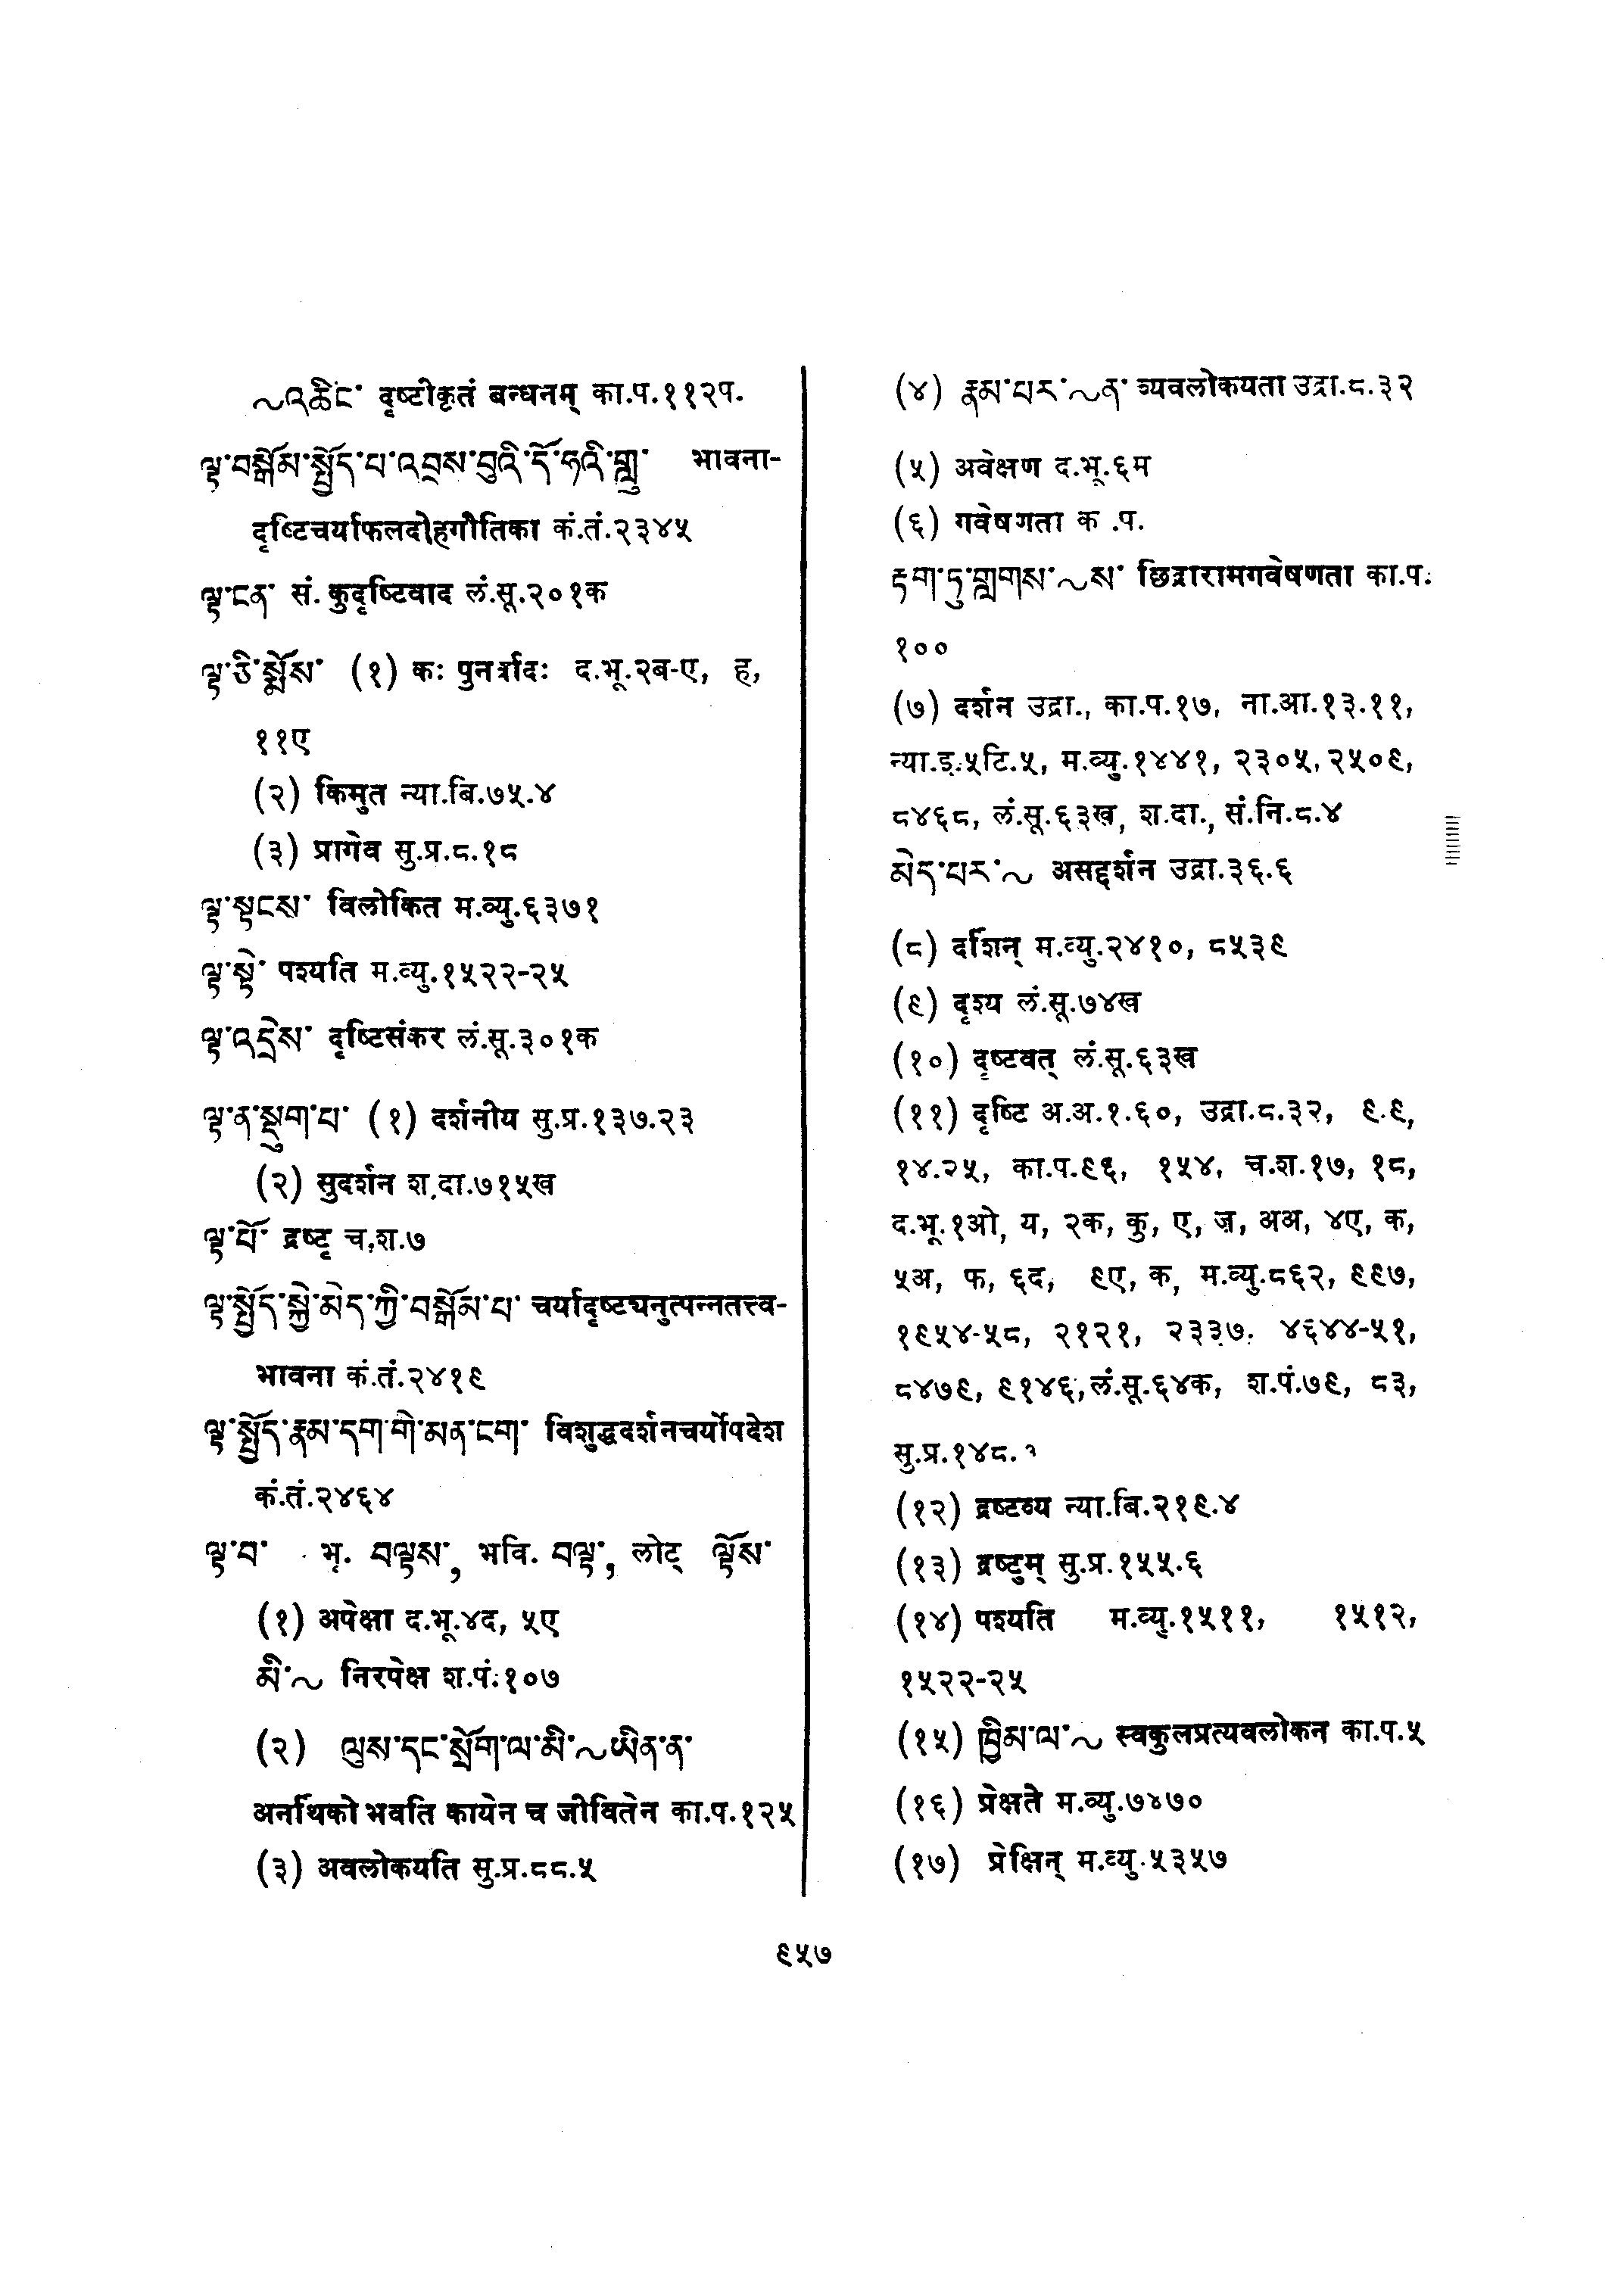 ~འཆིང་ दृष्टीकृतं बन्धनम् का.प.११२प.
ལྟ་བསྒོམ་སྤྱོད་པ་འབྲས་བུའི་དོ་ཧའི་གླུ་ भावना-
दृष्टिचर्याफलदोहगीतिका कं.तं.२३४५
ལྟ་ངན་ सं. कुदृष्टिवाद लं.सू.२०१क
ལྟ་ཅི་སྨོས་ (१) कः पुनर्वादः द.भू.२ब-ए, ह,
११ए
(२) किमुत न्या.बि.७५.४
(३) प्रागेव सु.प्र.८.१८
ལྟ་སྟངས་ विलोकित म.व्यु.६३७१
ལྟ་སྟེ་ पश्यति म.व्यु.१५२२-२५
ལྟ་འདྲེས་ दृष्टिसंकर लं.सू.३०१क
ལྟ་ན་སྡུག་པ་ (१) दर्शनीय सु.प्र.१३७.२३
(२) सुदर्शन श.दा.७१५ख
ལྟ་པོ་ द्रष्टृ च.श.७
ལྟ་སྤྱོད་སྐྱེ་མེད་ཀྱི་བསྒོམ་པ་ चर्यादृष्टयनुत्पन्नतत्त्व-
भावना कं.तं.२४१९
ལྟ་སྤྱོད་རྣམ་དག་གི་མན་ངག་ विशुद्धदर्शनचर्योपदेश
कं.तं.२४६४
ལྟ་བ་ भू. བལྟས་, भवि. བལྟ་, लोट् ལྟོས་
(१) अपेक्षा द.भू.४द, ५ए
མི་~ निरपेक्ष श.पं.१०७
(२) ལུས་དང་སྲོག་ལ་མི་~ཡིན་ན་
अनर्थिको भवति कायेन च जीवितेन का.प.१२५
(३) अवलोकयति सु.प्र.८८.५
(४) རྣམ་པར་~ན་ व्यवलोकयता उद्रा.८.३२
(५) अवेक्षण द.भू.६म
(६) गवेषणता क .प.
རྟག་ཏུ་གླགས་~ས་ छिद्रारामगवेषणता का.प.
१००
(७) दर्शन उद्रा., का.प.१७, ना.आ.१३.११,
न्या.इ.५टि.५, म.व्यु.१४४१, २३०५, २५०९,
८४६८, लं.सू.६३ख, श.दा., सं.नि.८.४
མེད་པར་~ असद्दर्शन उद्रा.३६.६
(८) दर्शिन् म.व्यु.२४१०, ८५३९
(९) दृश्य लं.सू.७४ख
(१०) दृष्टवत् लं.सू.६३ख
(११) दृष्टि अ.अ.१.६०, उद्रा.८.३२, ९.९,
१४.२५, का.प.९६, १५४, च.श.१७, १८,
द.भू.१ओ, य, २क, कु, ए, ज, अअ, ४ए, क,
५अ, फ, ६द, ९ए, क, म.व्यु.८६२, ९९७,
१९५४-५८, २१२१, २३३७. ४६४४-५१,
८४७९, ९१४६, लं.सू.६४क, श.पं.७९, ८३,
सु.प्र.१४८.
(१२) द्रष्टव्य न्या.बि.२१९.४
(१३) द्रष्टुम् सु.प्र.१५५.६
(१४) पश्यति म.व्यु.१५११, १५१२,
१५२२-२५
(१५) ཁྱིམ་ལ་~ स्वकुलप्रत्यवलोकन का.प.५
(१६) प्रेक्षते म.व्यु.७४७०
(१७) प्रेक्षिन् म.व्यु.५३५७
९५७